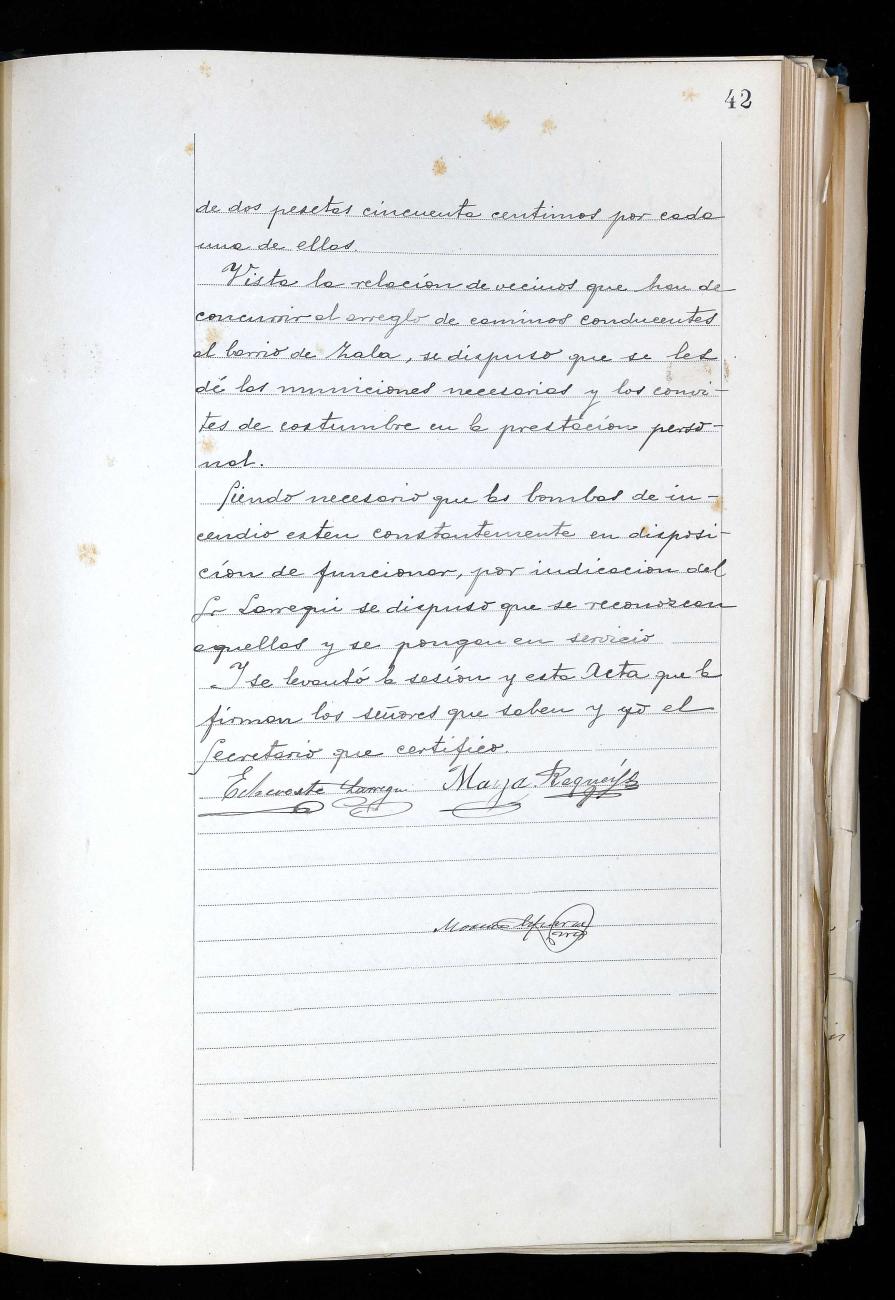 42
de dos pesetas cincuenta centimos por cada
una de ellas.
Vista la relación de vecinos que han de
concurrir al arreglo de caminos conducentes
al barrio de Zala, se dispuso que se les
dé las municiones necesarias y los convi-
tes de costumbre en la prestación perso-
nal.
Siendo necesario que las bombas de in-
cendio esten constantemente en disposi-
ción de funcionar, por indicacion del
Sr Larregui se dispuso que se reconozcan
aquellas y se pongan en servicio
Y se levantó la sesión y esta Acta que la
firman los señores que saben y yo el
Secretario que certifico.
Echeveste Larregui Maiza